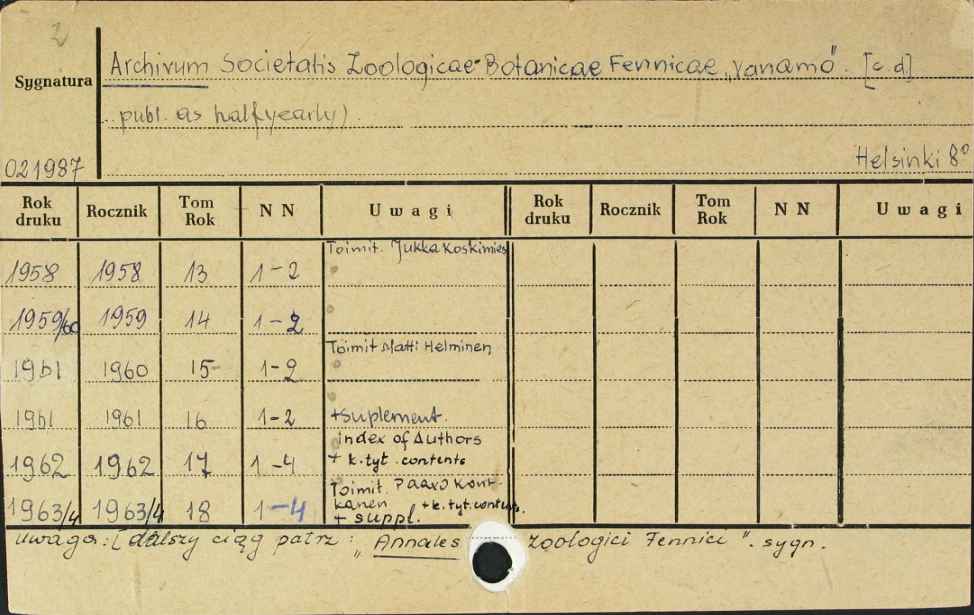 2
Sygnatura
Archivum Societatis Zoologicae-Botanicae Fennicae „Vanamo". [c.d]
publ. as halfyearly)
021987
Helsinki 8°
Rok druku Rocznik Tom Rok N N Uwagi Rok druku Rocznik Tom Rok N N Uwagi
1958 1958 13 1-2 Toimit. Jukka Koskimies
1959/60 1959 14 1-2
1961 1960 15 1-2 Toimit Matti Helminen
1961 1961 16 1-2 +suplement.
index of Authors
1962 1962 17 1-4 + k.tyt. contents
Toimit. Paavo Kont-
kanen +k.tyt.contents.
1963/4 1963/4 18 1-4 + suppl.
Uwaga: [dalszy ciąg patrz: „Annales Zoologici Fennici". sygn.